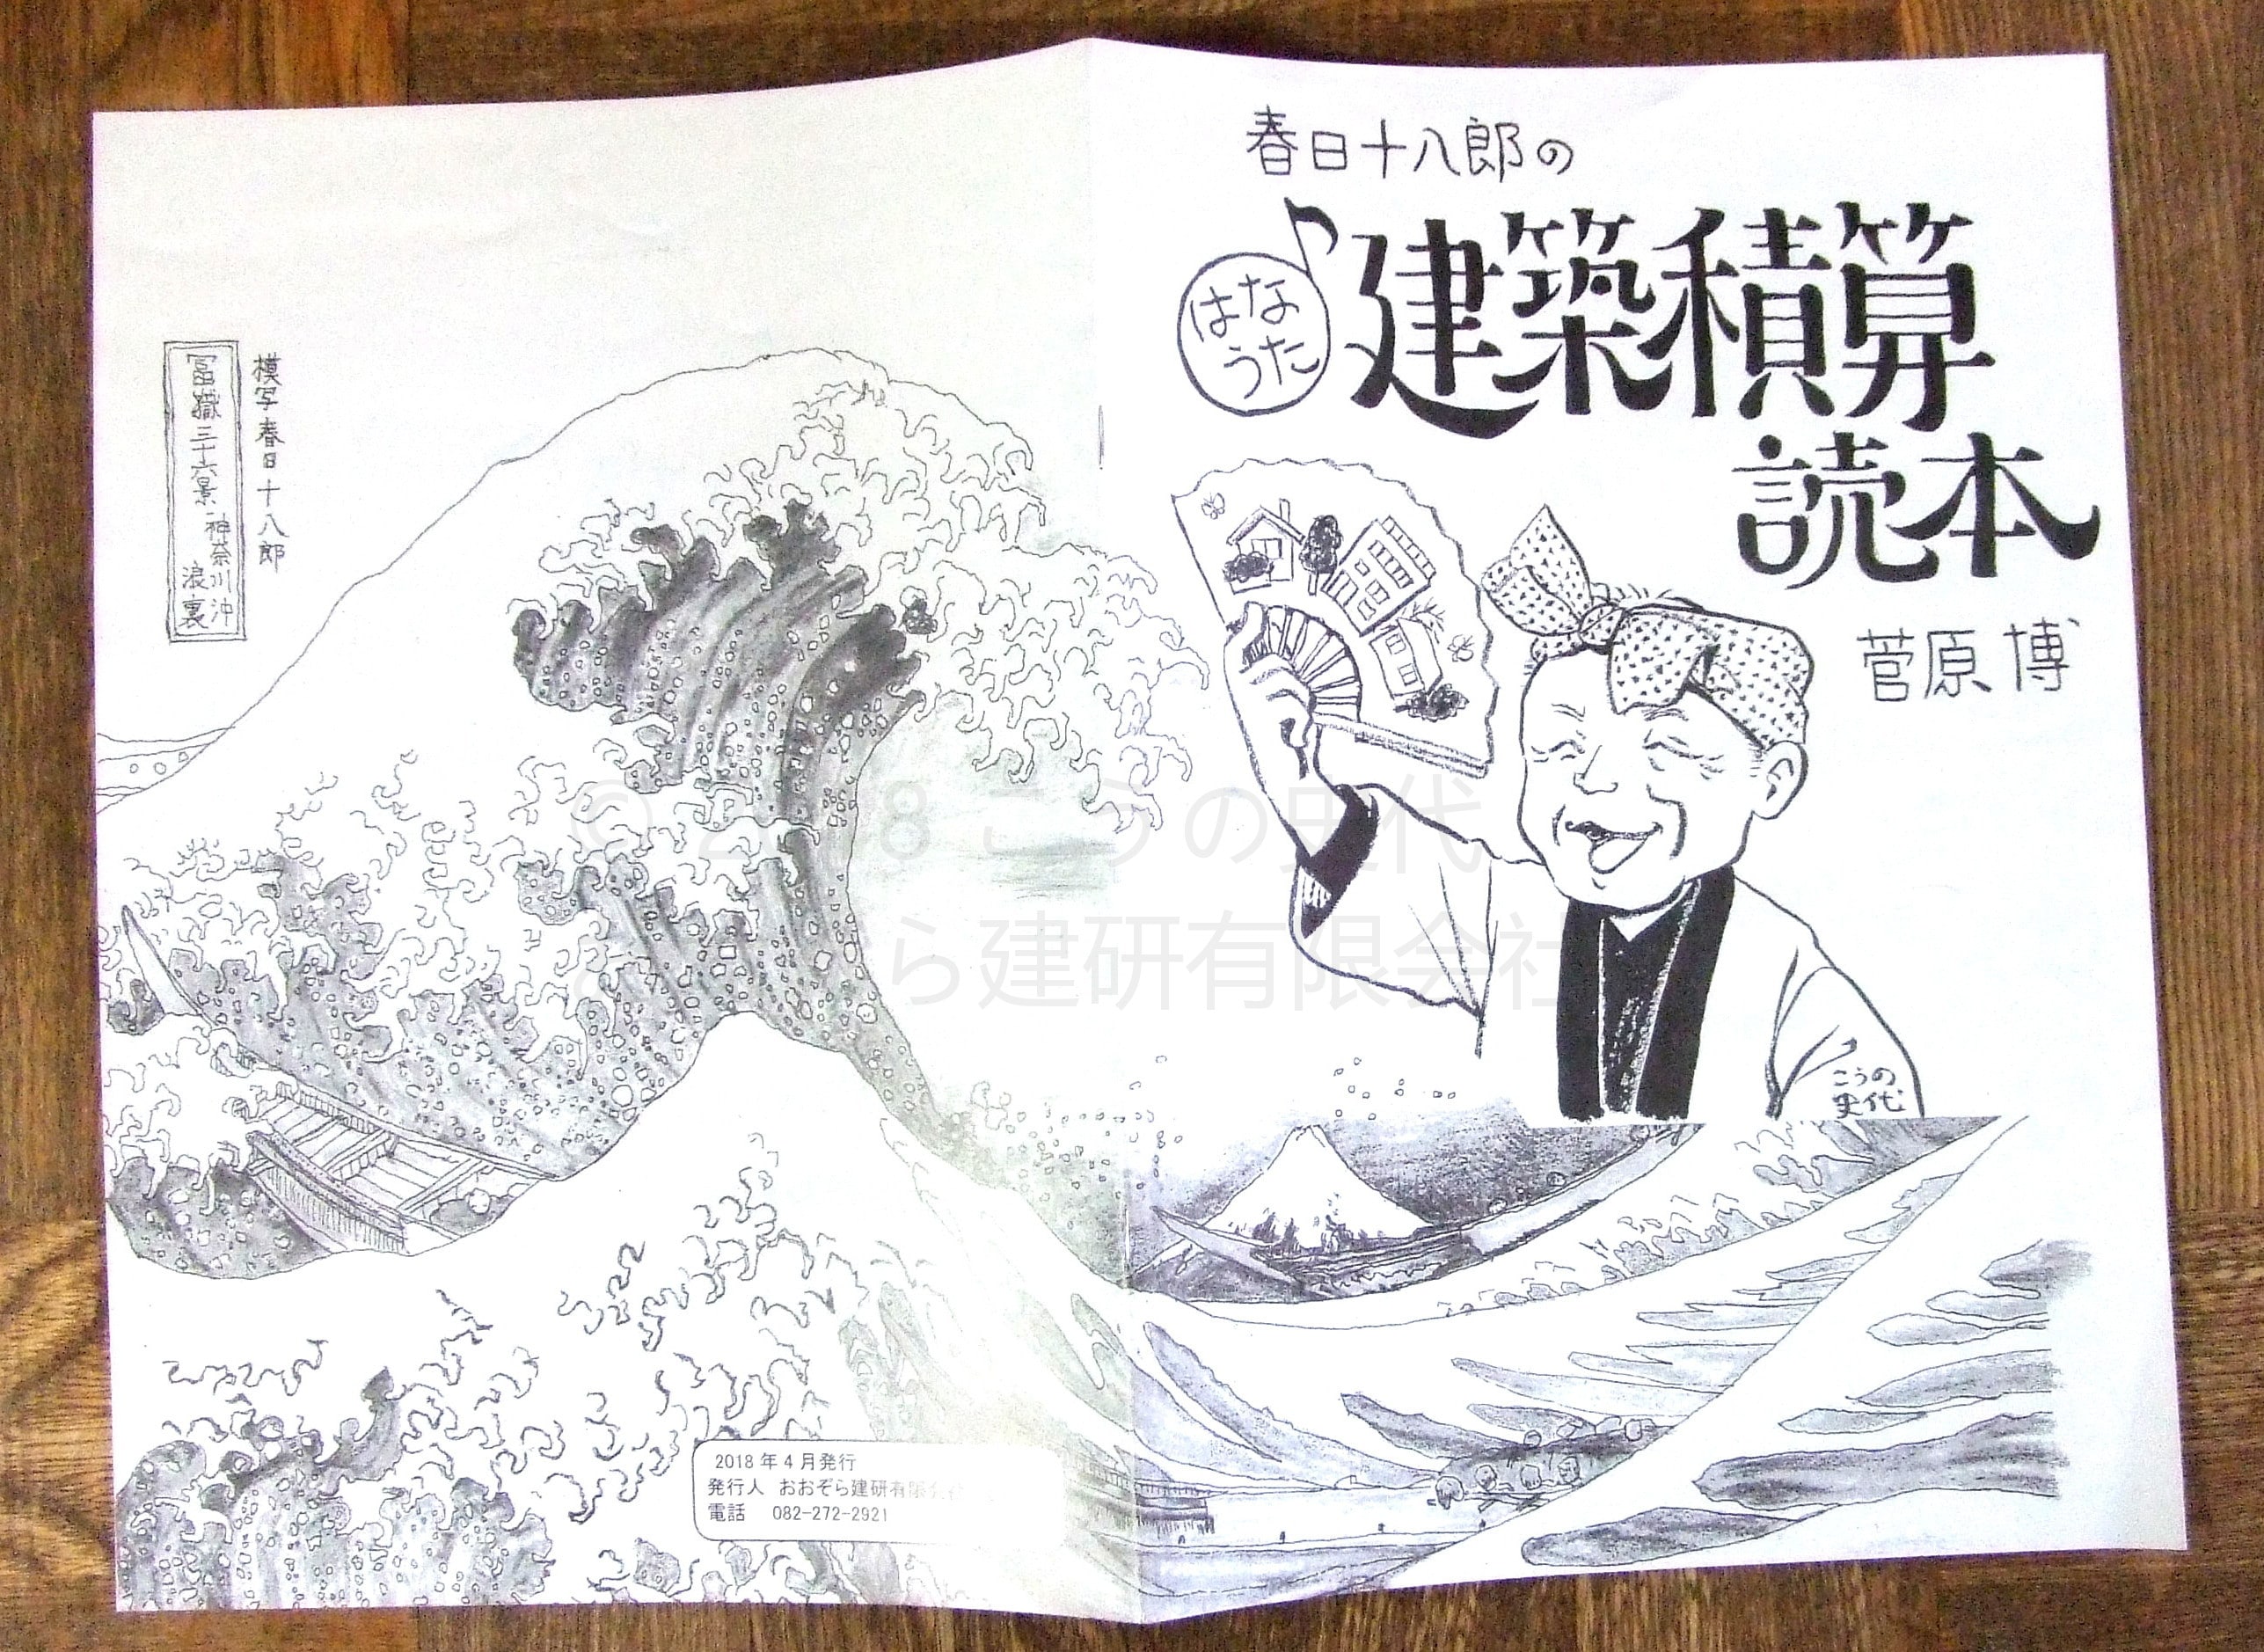 春日十八郎の
はな
うた
建築積算
読本
菅原 博
こうの
史代
模写春日十八郎
冨嶽三十六景
神奈川沖
浪裏
2018年4月発行
発行人 おおぞら建研有限会社
電話 082-272-2921
8 こうの史代
ら建研有限会社